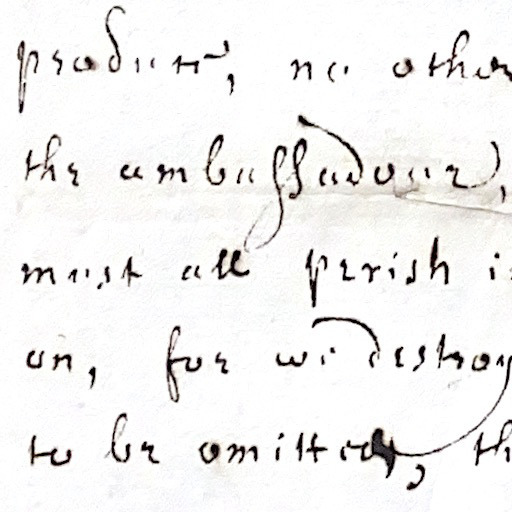 produce, no other
the ambassadour,
must all perish i
on, for we destroy
to be omitted, th